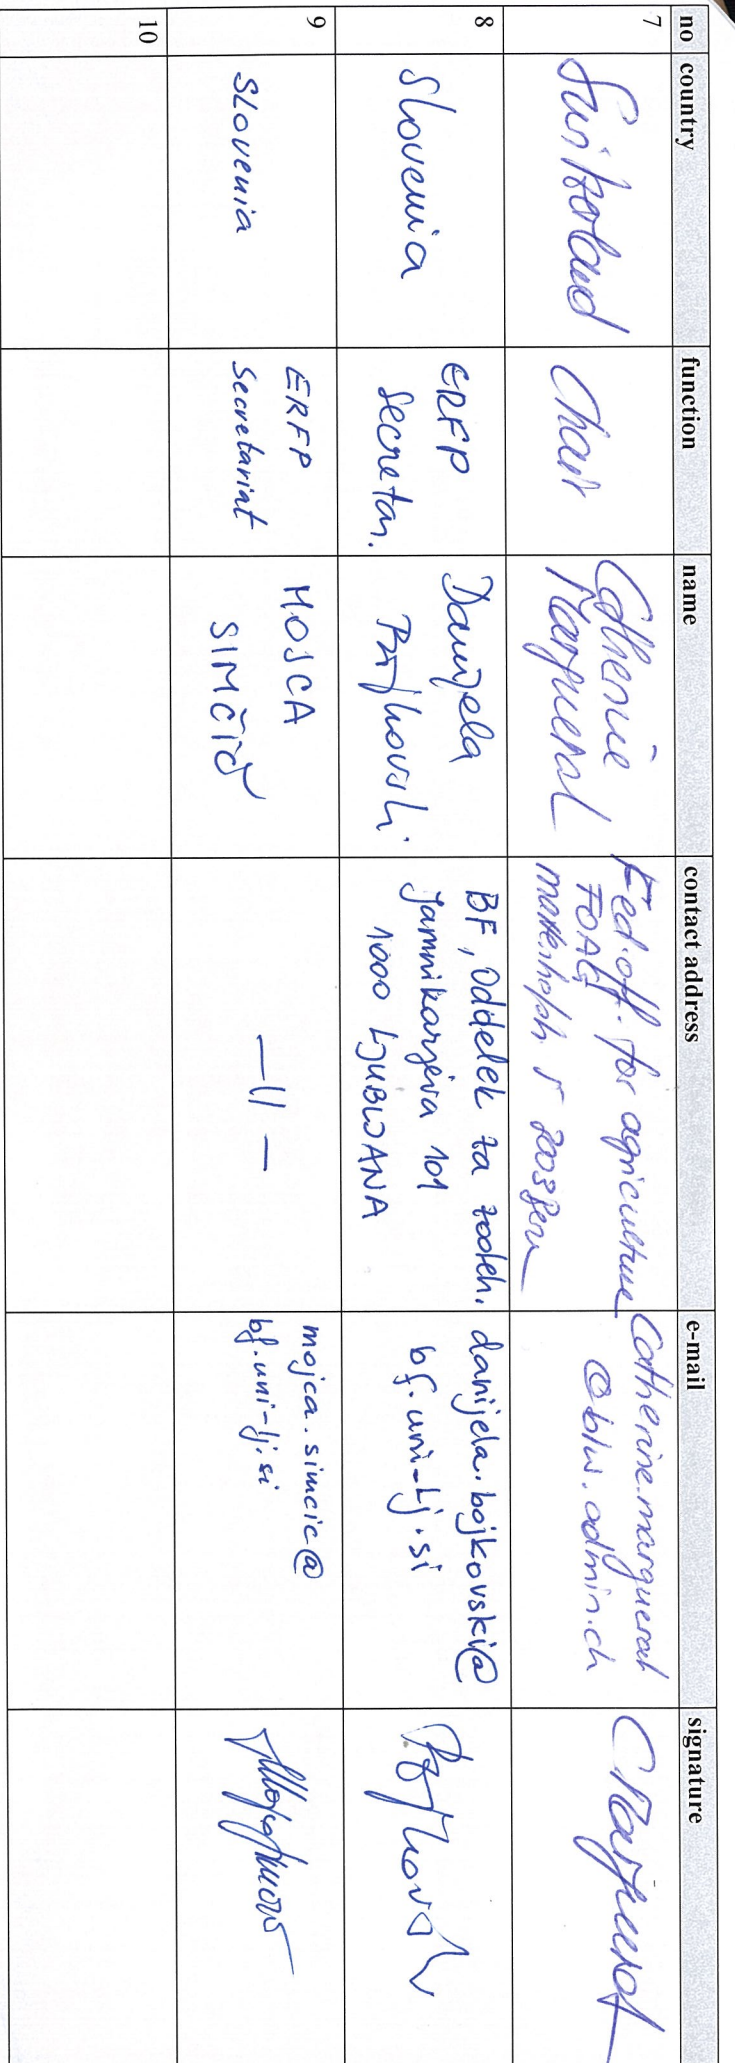 no country function name contact address e-mail signature
7 Switzerland Chair Catherine Marguerat Fed. off. for agriculture
FOAG
5 3003 Bern
Catherine.marguerat
@blw.admin.ch
CMarguerat
8 Slovenia ERFP
Secretar.
Danijela
Bojkovski
BF, Oddelek za zooteh.
Jamnikarjeva 101
1000 LJUBLJANA
danijela.bojkovski@
bf.uni-lj.si
Bojkovski
9 Slovenia ERFP
Secretariat
MOJCA
SIMČIČ
—11—
mojca.simcic@
bf.uni-lj.si
10